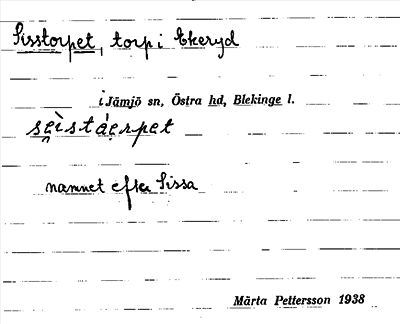 Sisstorpet, torp i Ekeryd
i Jämjö sn, Östra hd, Blekinge l.
namnet efter Sissa
Märta Pettersson 1938